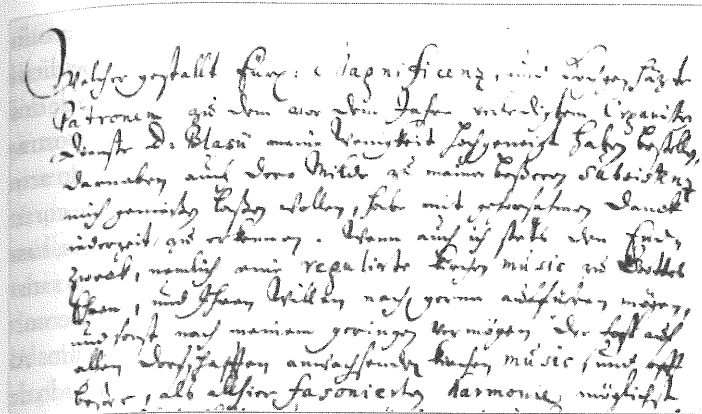 Welcher gestallt Eure: Magnificenz, und Hochgeschäzte
Patronen zu dem vor dem Jahre verledigten Organisten
Dienste D: Blasii meine Wenigkeit hochgeneigt haben bestellen,
darneben auch Dero Milde zu meiner beßeren subsistenz
mich genießen laßen wollen, habe mit gehorsahmen Danck
iederzeit zu erkennen. Wenn auch ich stets den End-
zweck, nemlich eine regulirte kirchen music zu Gottes
Ehren, und Ihren Willen nach, gerne aufführen mögen,
und sonst nach meinem geringen vermögen der fast auf
allen Dorfschafften anwachsenden kirchen music, und offt
beßer, als allhier fasonierten harmonie möglichst